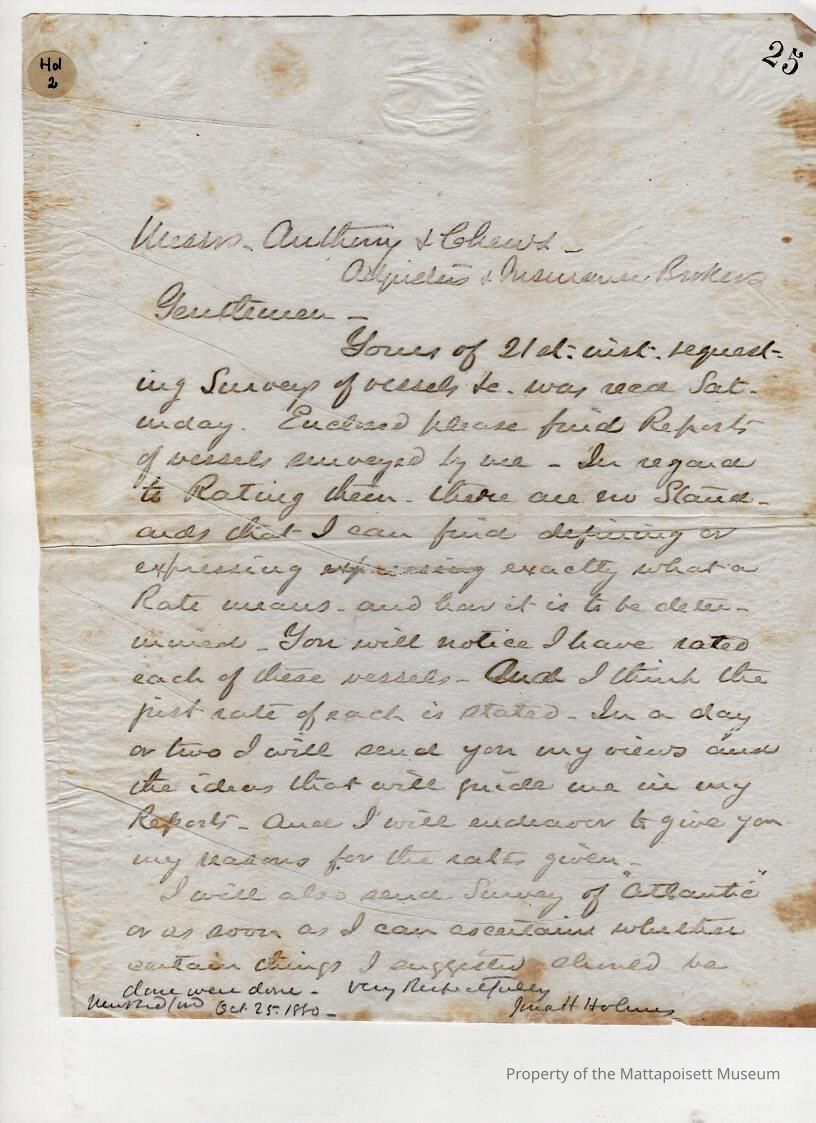 Hol
2
25
Messrs. Anthony & Chews -
Adjusters & Insurance Brokers
Gentlemen -
Yours of 21st: inst. request-
ing Surveys of vessels &c. was recd Sat-
urday. Enclosed please find Reports
of vessels surveyed by me - In regard
to Rating them - there are no Stand-
ards that I can find defining or
expressing expressing exactly what a
Rate means - and how it is to be deter-
mined - You will notice I have rated
each of these vessels - And I think the
just rate of each is stated - In a day
or two I will send you my views and
the ideas that will guide me in my
Reports - And I will endeavor to give you
my reasons for the rates given -
I will also send Survey of "Atlantic"
or as soon as I can ascertain whether
certain things I suggested should be
done were done - Very Respectfully
New Bedford Oct 25. 1880 - Holmes
Property of the Mattapoisett Museum